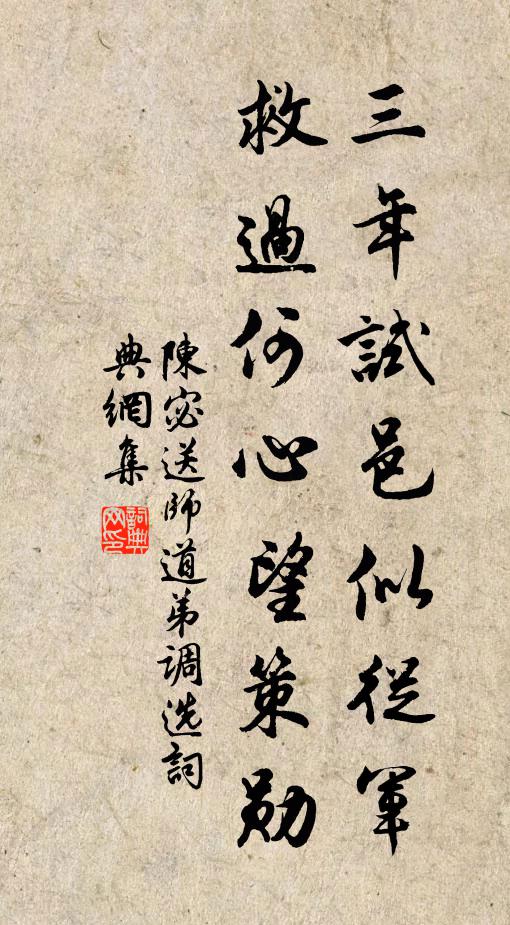 三年試邑似從軍
救過何心望策勛
陳宓送師道弟調选詞
典網集
詞典
网印